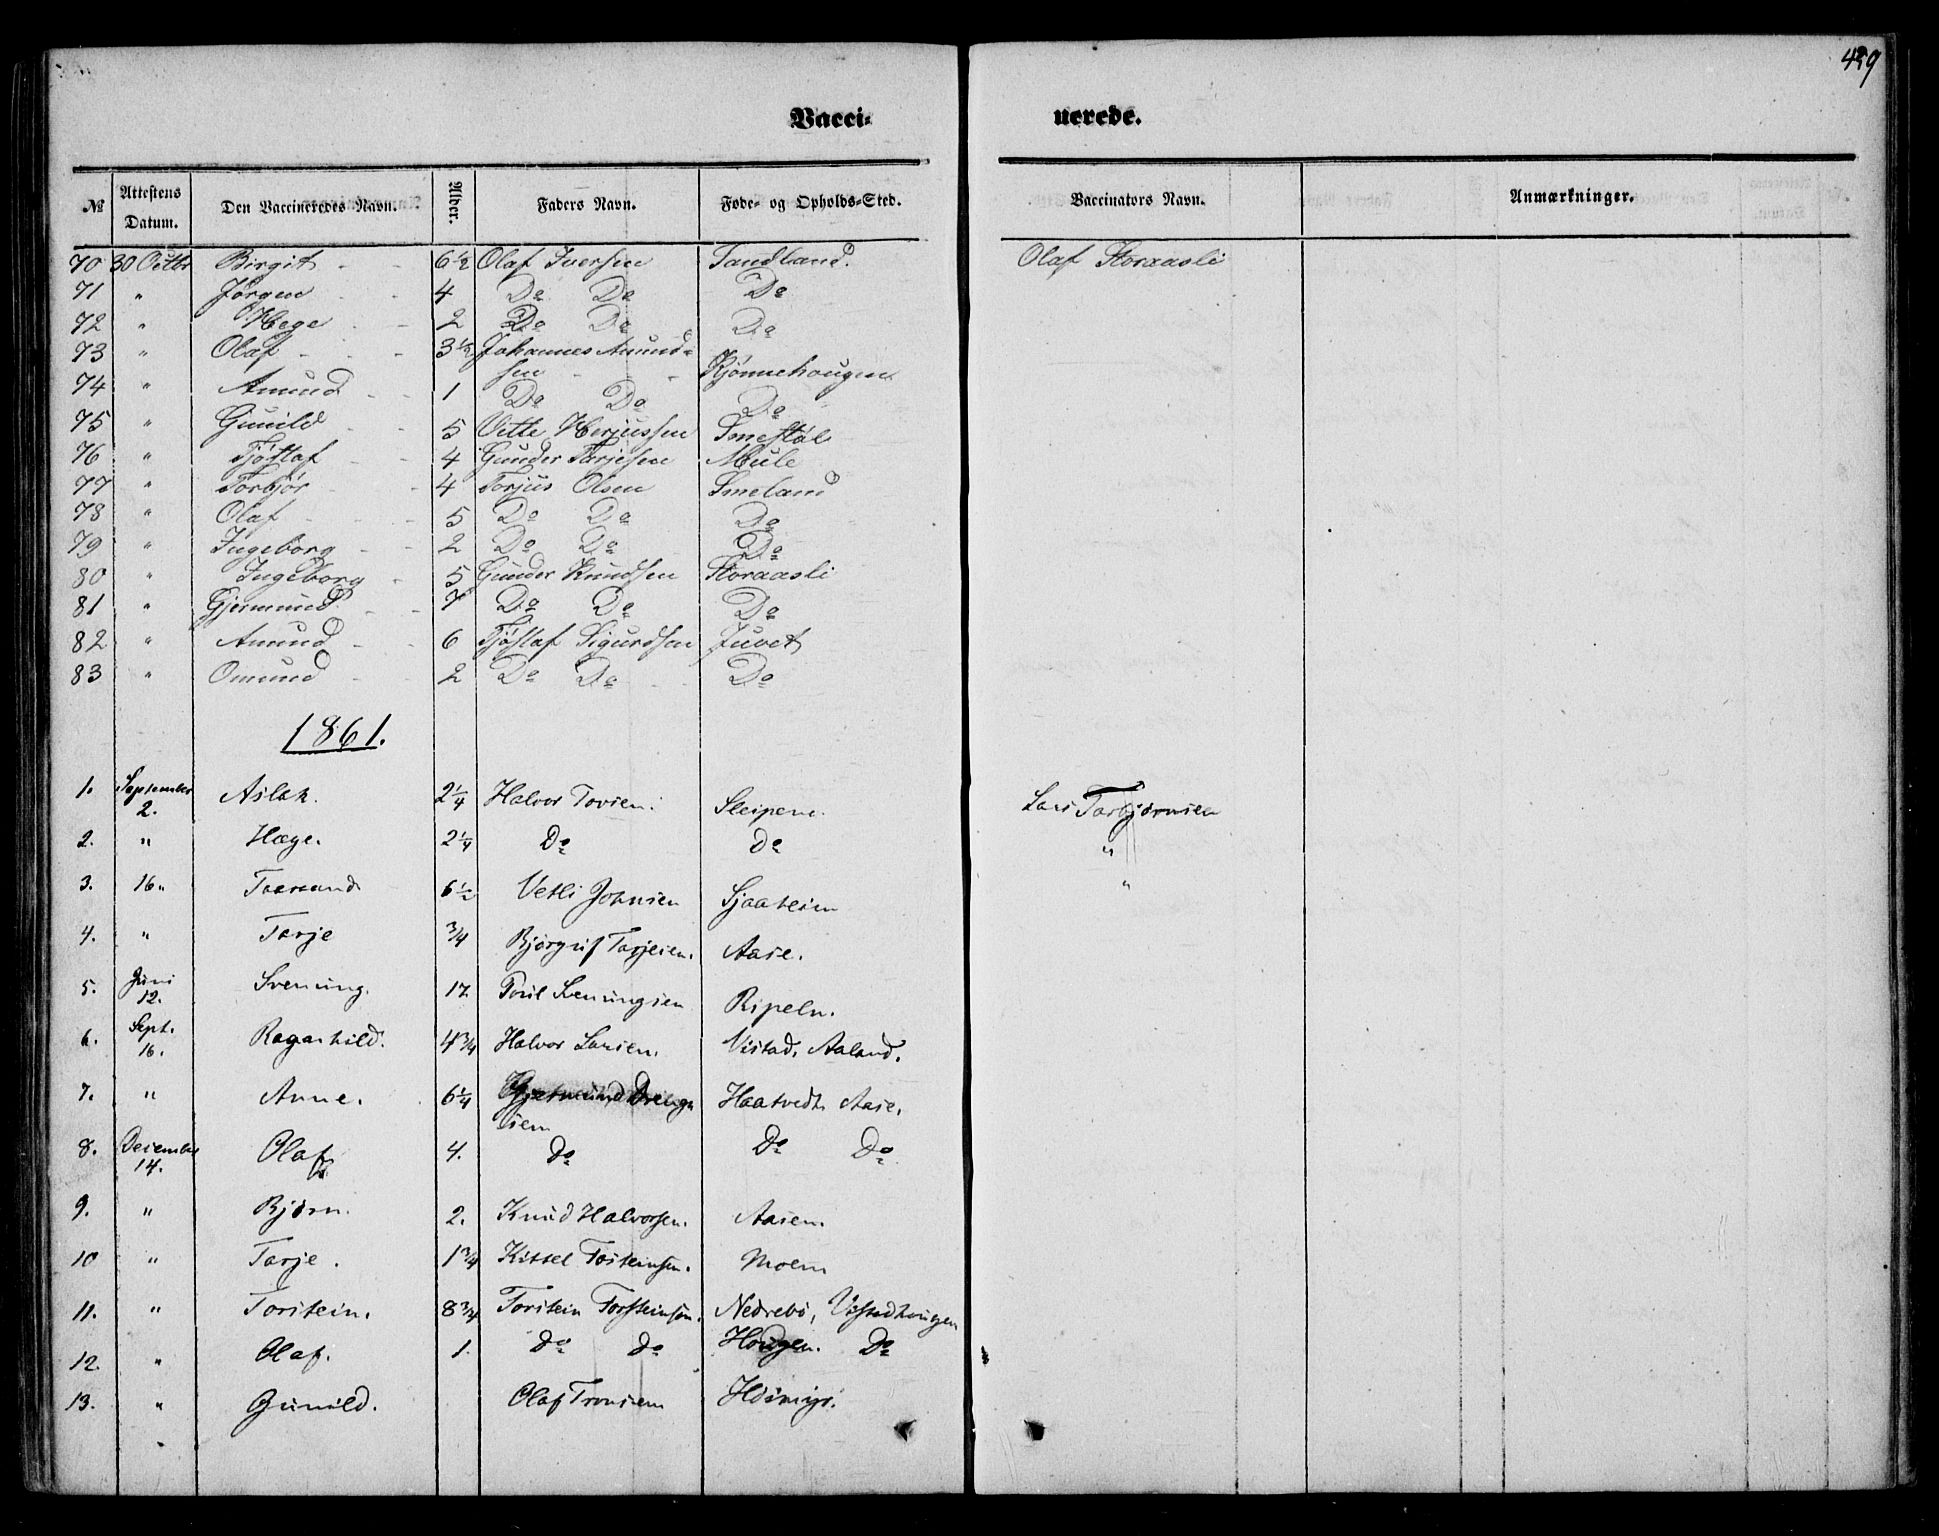 429
Vacci-nerede.
№ Attestens Datum. Den Vaccineredes Navn. Alder. Faders Navn. Føde- og Opholds-Sted. Vaccinators Navn. Anmærkninger.
70 30 Octbr Birgit - - 6 1/2 Olaf Iversen Sandland. Olaf Storaasli
71 " Jørgen - - 4 Do Do Do
72 " Hege - - 2 Do Do Do
73 " Olaf - - - 3 1/2 Johannes Amund-
sen - - Kjønnehougen
74 " Amund - - 1 Do Do Do
75 " Gunild - - 5 Vetle Herjussen Smestøl
76 " Tjøstlaf - - 4 Gunder Tarjesen Mule
77 " Torbjør - - 4 Torjus Olsen Smeland
78 " Olaf - - - 5 Do Do Do
79 " Ingeborg - - 2 Do Do Do
80 " Ingeborg - 5 Gunder Knudsen Storaasli
81 " Gjermund - - 7 Do Do Do
82 " Amund - - 6 Tjøstlaf Sigurdsen Juvet
83 " Omund - - 2 Do Do - - Do
1861.
1. September 2. Aslak. 2 1/4 Halvor Tovsen. Sleipene. Lars Tarbjørnsen
2. " Hæge. 2 1/4 Do do "
3. 16 " Taraand 6 1/2 Vetli Johnsen Sjaaheim "
4. " Tarje 3/4 Bjørguf Tarjesen. Aase.
5. Juni 12. Svenung. 17 Svenungsen Ripeln.
6. Sept. 16. Raganhild. 4 3/4 Halvor Larsen. Vistad, Aaland.
7. " Anne. 6 1/4 Gjermund Drengn
sen Haatvedt Aase.
8. December 14. Olaf 4. do Do Do
9. " Bjørn. 2. Knud Halvorsen. Aasen.
10 " Tarje. 1 3/4 Kittel Tosteinsen. Moen
11. " Torstein. 8 3/4 Torstein Torsteinsøn. Nedrebø, Vistadhougen
12. " Olaf. 1. do do Hougen. Do
13. " Gunild. Olaf Tronsen